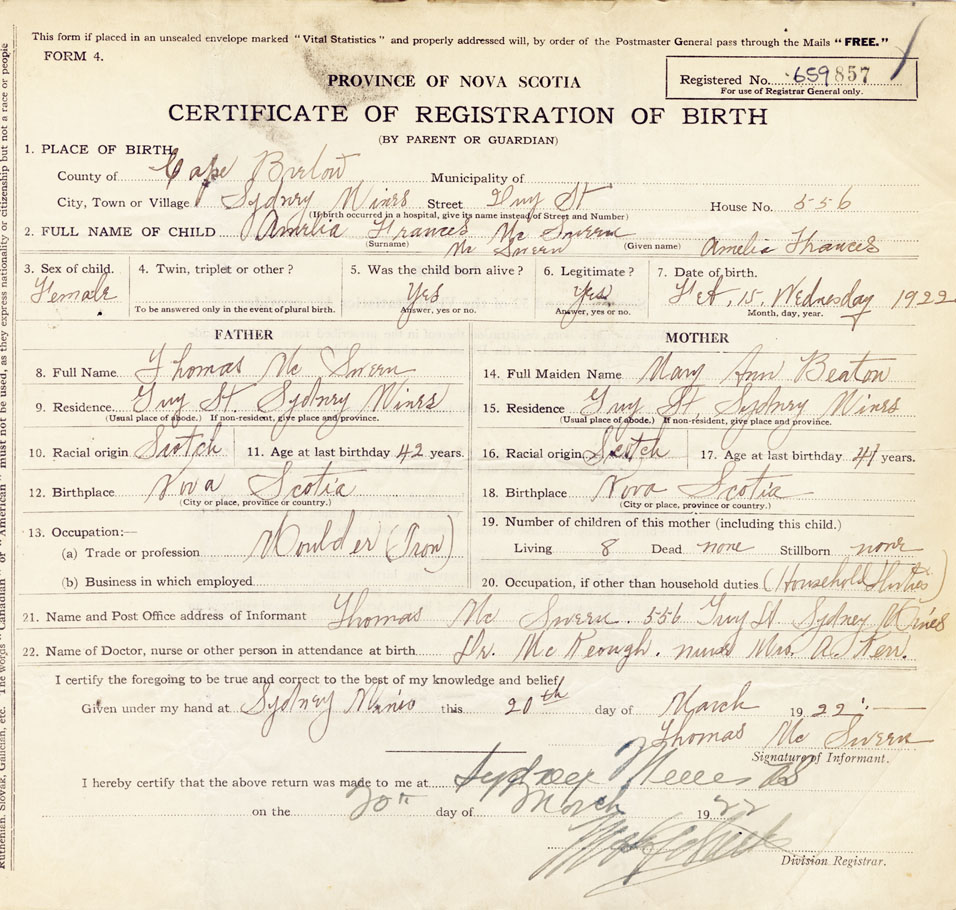 This form if placed in an unsealed envelope marked "Vital Statistics" and properly addressed will, by order of the Postmaster General pass through the Mails "FREE."
FORM 4.
PROVINCE OF NOVA SCOTIA
Registered No. 659857
For use of Registrar General only.
CERTIFICATE OF REGISTRATION OF BIRTH
(BY PARENT OR GUARDIAN)
1. PLACE OF BIRTH
County of Cape Breton Municipality of
City, Town or Village Sydney Mines Street Guy St House No. 556
(If birth occurred in a hospital, give its name instead of Street and Number)
2. FULL NAME OF CHILD Amelia Frances Mc Sween
(Surname) Mc Sween (Given name) Amelia Frances
3. Sex of child. 4. Twin, triplet or other? 5. Was the child born alive? 6. Legitimate? 7. Date of birth.
Female Yes Yes Feb, 15, Wednesday 1922
To be answered only in the event of plural birth. Answer, yes or no. Answer, yes or no. Month, day, year.
FATHER MOTHER
8. Full Name Thomas Mc Sween 14. Full Maiden Name Mary Ann Beaton
9. Residence Guy St. Sydney Mines 15. Residence Guy St, Sydney Mines
(Usual place of abode.) If non-resident, give place and province. (Usual place of abode.) If non-resident, give place and province.
10. Racial origin Scotch 11. Age at last birthday 42 years. 16. Racial origin Scotch 17. Age at last birthday 41 years.
12. Birthplace Nova Scotia 18. Birthplace Nova Scotia
(City or place, province or country.) (City or place, province or country.)
13. Occupation:— 19. Number of children of this mother (including this child.)
(a) Trade or profession Moulder (Iron) Living 8 Dead none Stillborn none
(b) Business in which employed 20. Occupation, if other than household duties (Household Duties)
21. Name and Post Office address of Informant Thomas Mc Sween. 556 Guy St. Sydney Mines
22. Name of Doctor, nurse or other person in attendance at birth Dr. McKeough. nurse Mrs. A. Kerr.
I certify the foregoing to be true and correct to the best of my knowledge and belief
Given under my hand at Sydney Mines this 20th day of March 1922
Thomas Mc Sween
Signature of Informant.
I hereby certify that the above return was made to me at Sydney Mines
on the 20th day of March 1922
Division Registrar.
Ruthenian, Slovak, Galician, etc. The words "Canadian" or "American" must not be used, as they express nationality or citizenship but not a race or people